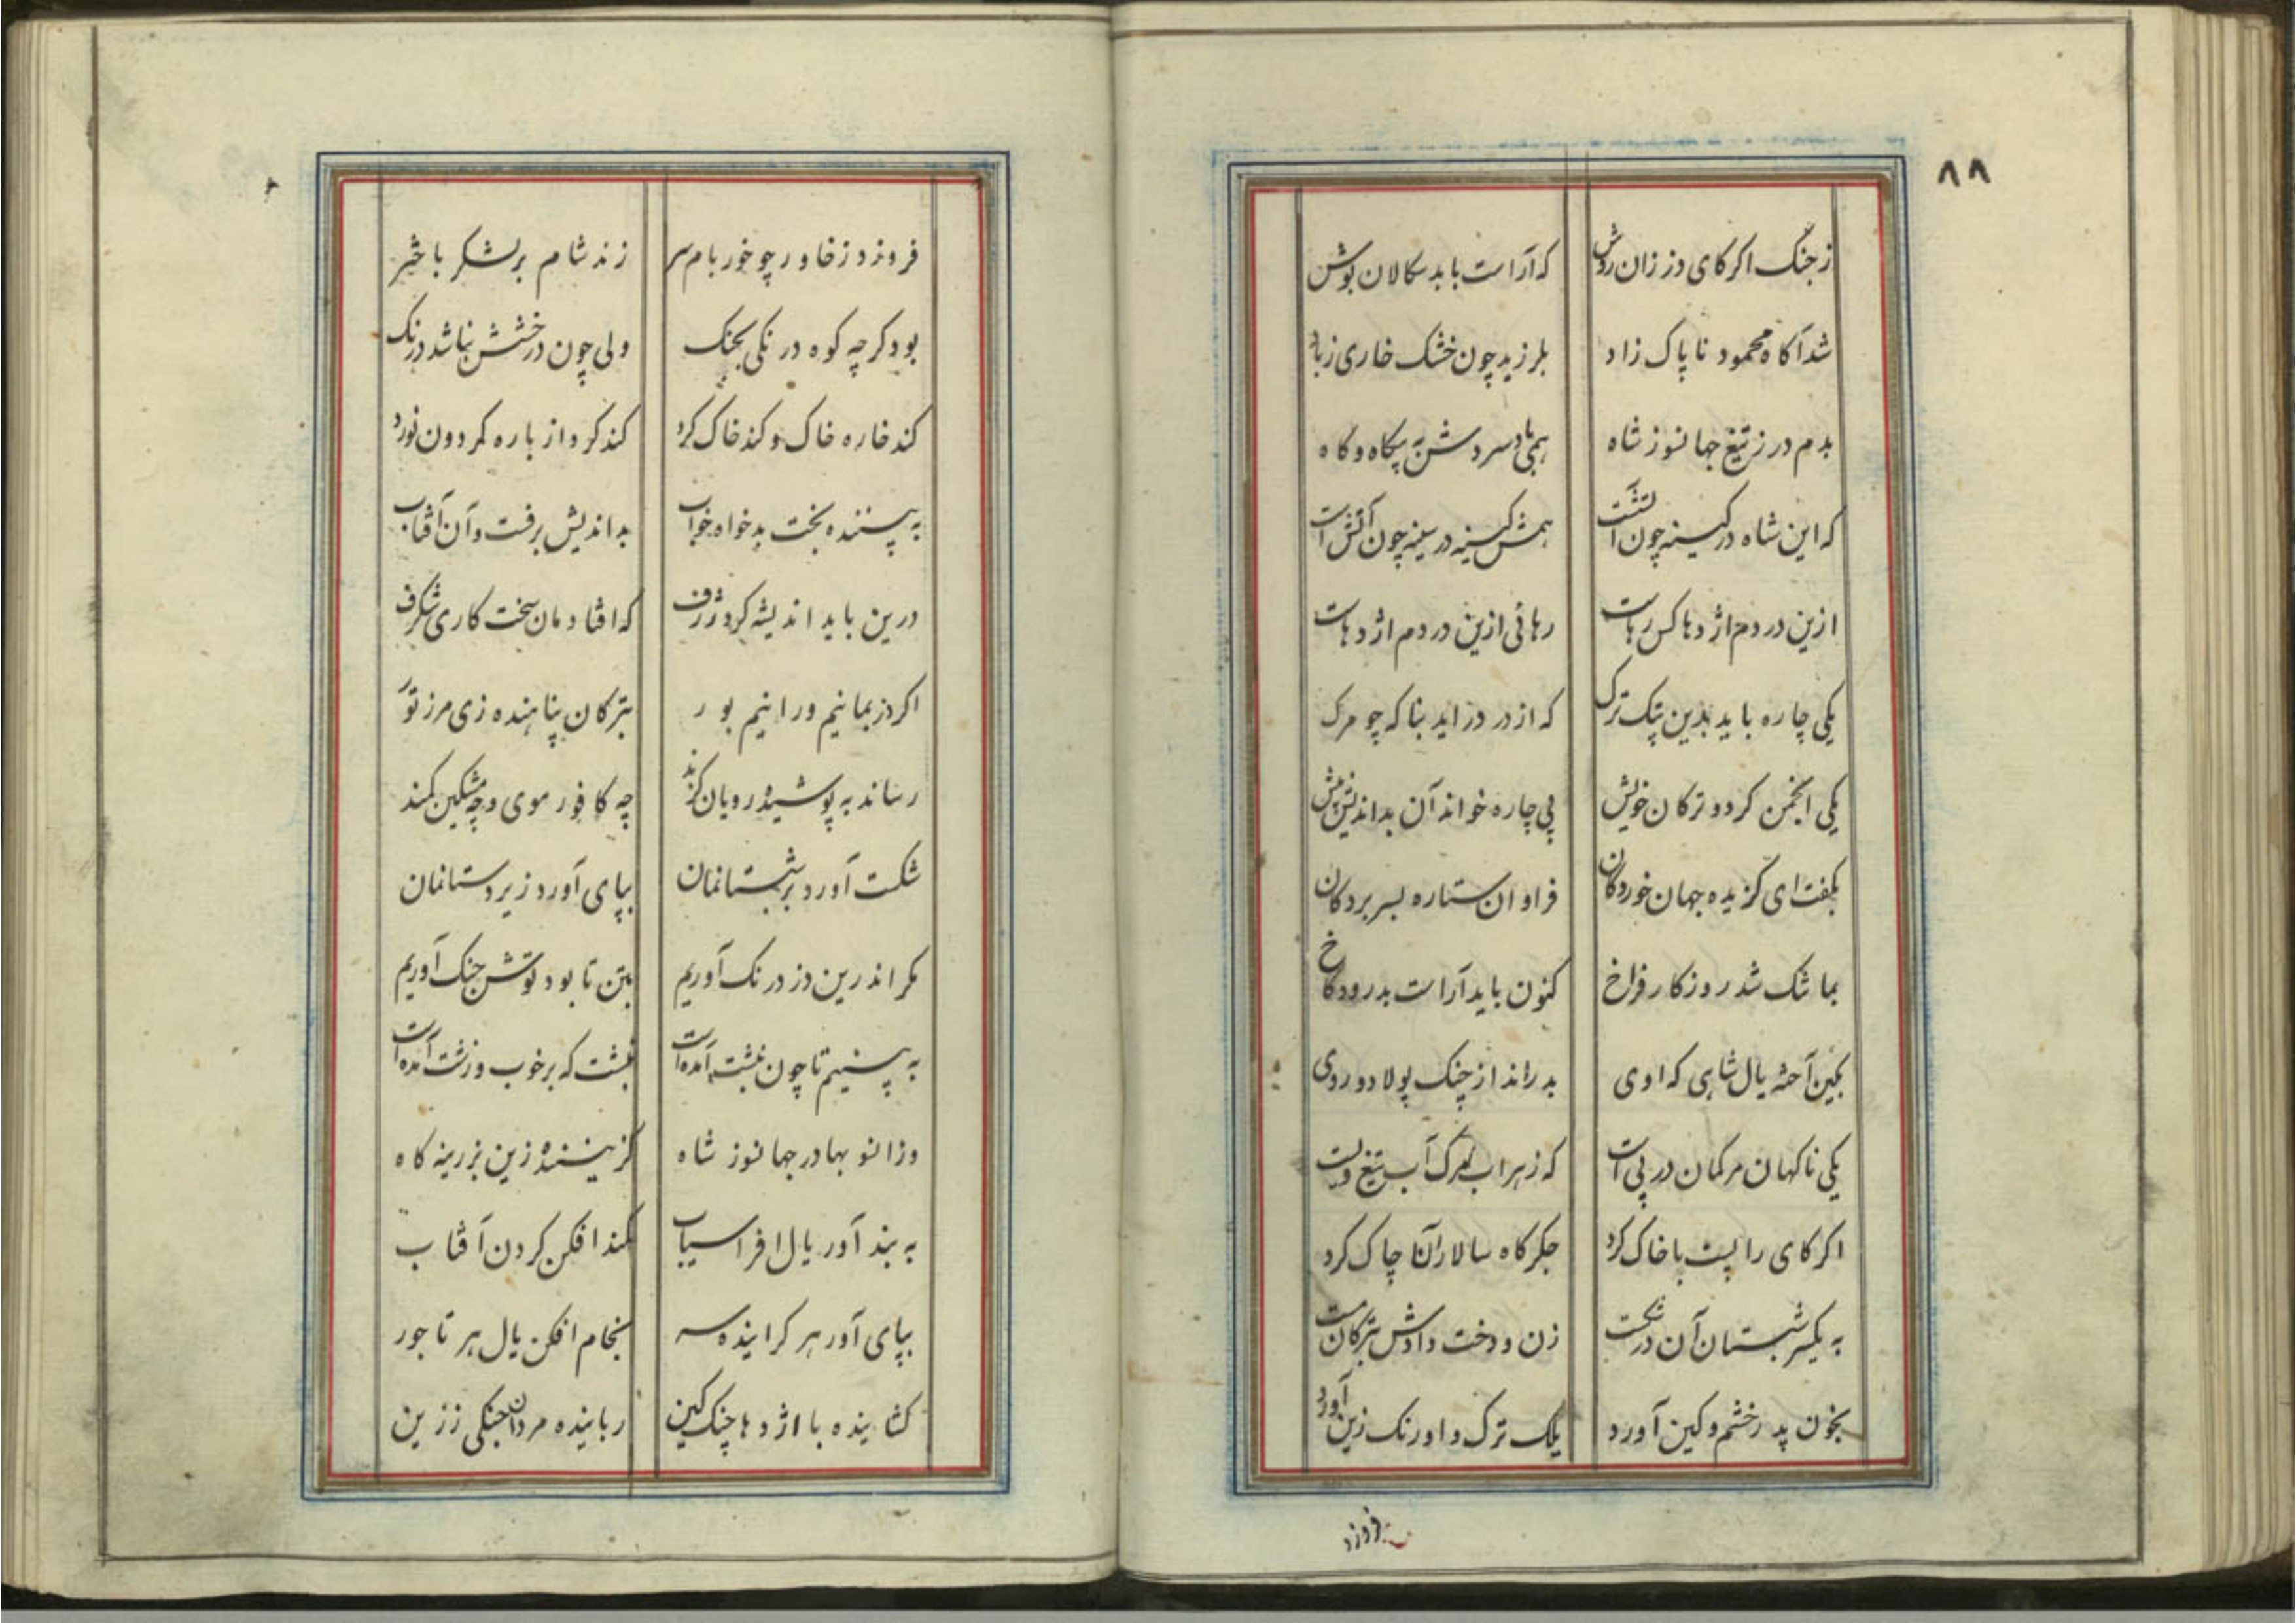 ۸۸
ز جنک اکر کای دز زان روش که آراست باید سکالان بوش
شد آکاه محمود ناپاک زاد بلرزید چون خشک خاری ز باد
بدم در ز تیغ جهانسوز شاه همی باد سردش به بیکاه و کاه
که این شاه در کینه چون آتشست همش کینه در سینه چون آتش است
ازین در دم اژدها کس رهاست رهائی ازین در دم اژدهاست
یکی چاره باید بدین ترک که از در دز اید بناکه چو مرک
یکی انجمن کرد و ترکان خویش پی چاره خواند آن بداندیش پیش
بکفت ای کزیده جهان خوردکان فراوان ستاره بسر بردکان
بما تنک شد روزکار فراخ کنون باید آراست بدرود کاخ
بکین آخته یال شاهی که اوی بدراند از چنک پولاد و روی
یکی ناکهان مرکمان در پی است که زهراب مرک آب تیغ ویست
اکر کای را پست با خاک کرد جکرکاه سالار آن چاک کرد
به یکسر شبستان آن درشکست زن و دخت دادش بترکان مست
بخون پدر خشم و کین آورد یلک ترک و اورنک زین آورد
فروزد
فروزد ز خاور چو خور بام سر زند شام بر لشکر باختر
بود کرچه کوه درنکی بجنک ولی چون درخشش نباشد درنک
کند خاره خاک و کند خاک کرد کند کرد از باره کردون نورد
به پیننده بخت بدخواه خواب بداندیش برفت و آن آفتاب
درین باید اندیشه کرد ژرف که افتادمان سخت کاری شکرف
اکر دز بمانیم و رانیم بور بترکان پناهنده زی مرز تور
رساند به پوشیده رویان کزند چه کافور موی و چه مشکین کمند
شکست آورد بر شبستانمان بپای آورد زیردستانمان
مکر اندرین دز درنک آوریم بتن تا بود توش جنک آوریم
به بینیم تا چون نبشت آمده است نبشت که بر خوب و زشت آمده است
وزانسو بهادر جهانسوز شاه نشیننده زین بزرینه کاه
به بند آور یال افراسیاب کمند افکن کردن آفتاب
بپای آور هر کراینده سر بخام افکن یال هر تاجور
کشاینده با اژدها چنک کین رباینده مردان جنکی ز زین